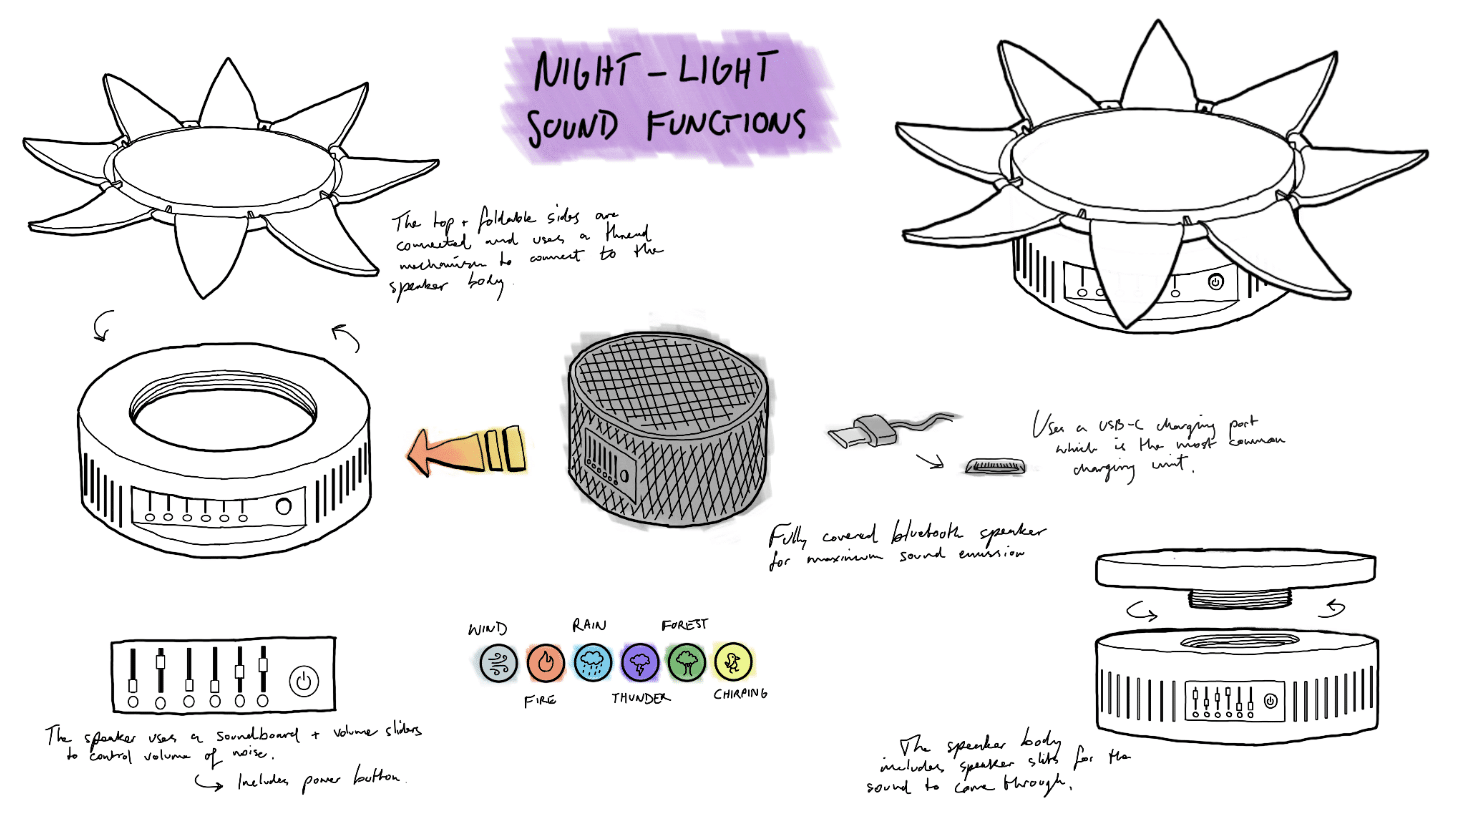 NIGHT-LIGHT
SOUND FUNCTIONS
The top + foldable sides are
connected and uses a thread
mechanism to connect to the
speaker body.
Uses a USB-C charging port
which is the most common
charging unit.
Fully covered bluetooth speaker
for maximum sound emission
WIND
RAIN
FOREST
FIRE
THUNDER
CHIRPING
The speaker uses a soundboard + volume sliders
to control volume of noise.
Includes power button.
The speaker body
includes speaker slits for the
sound to come through.